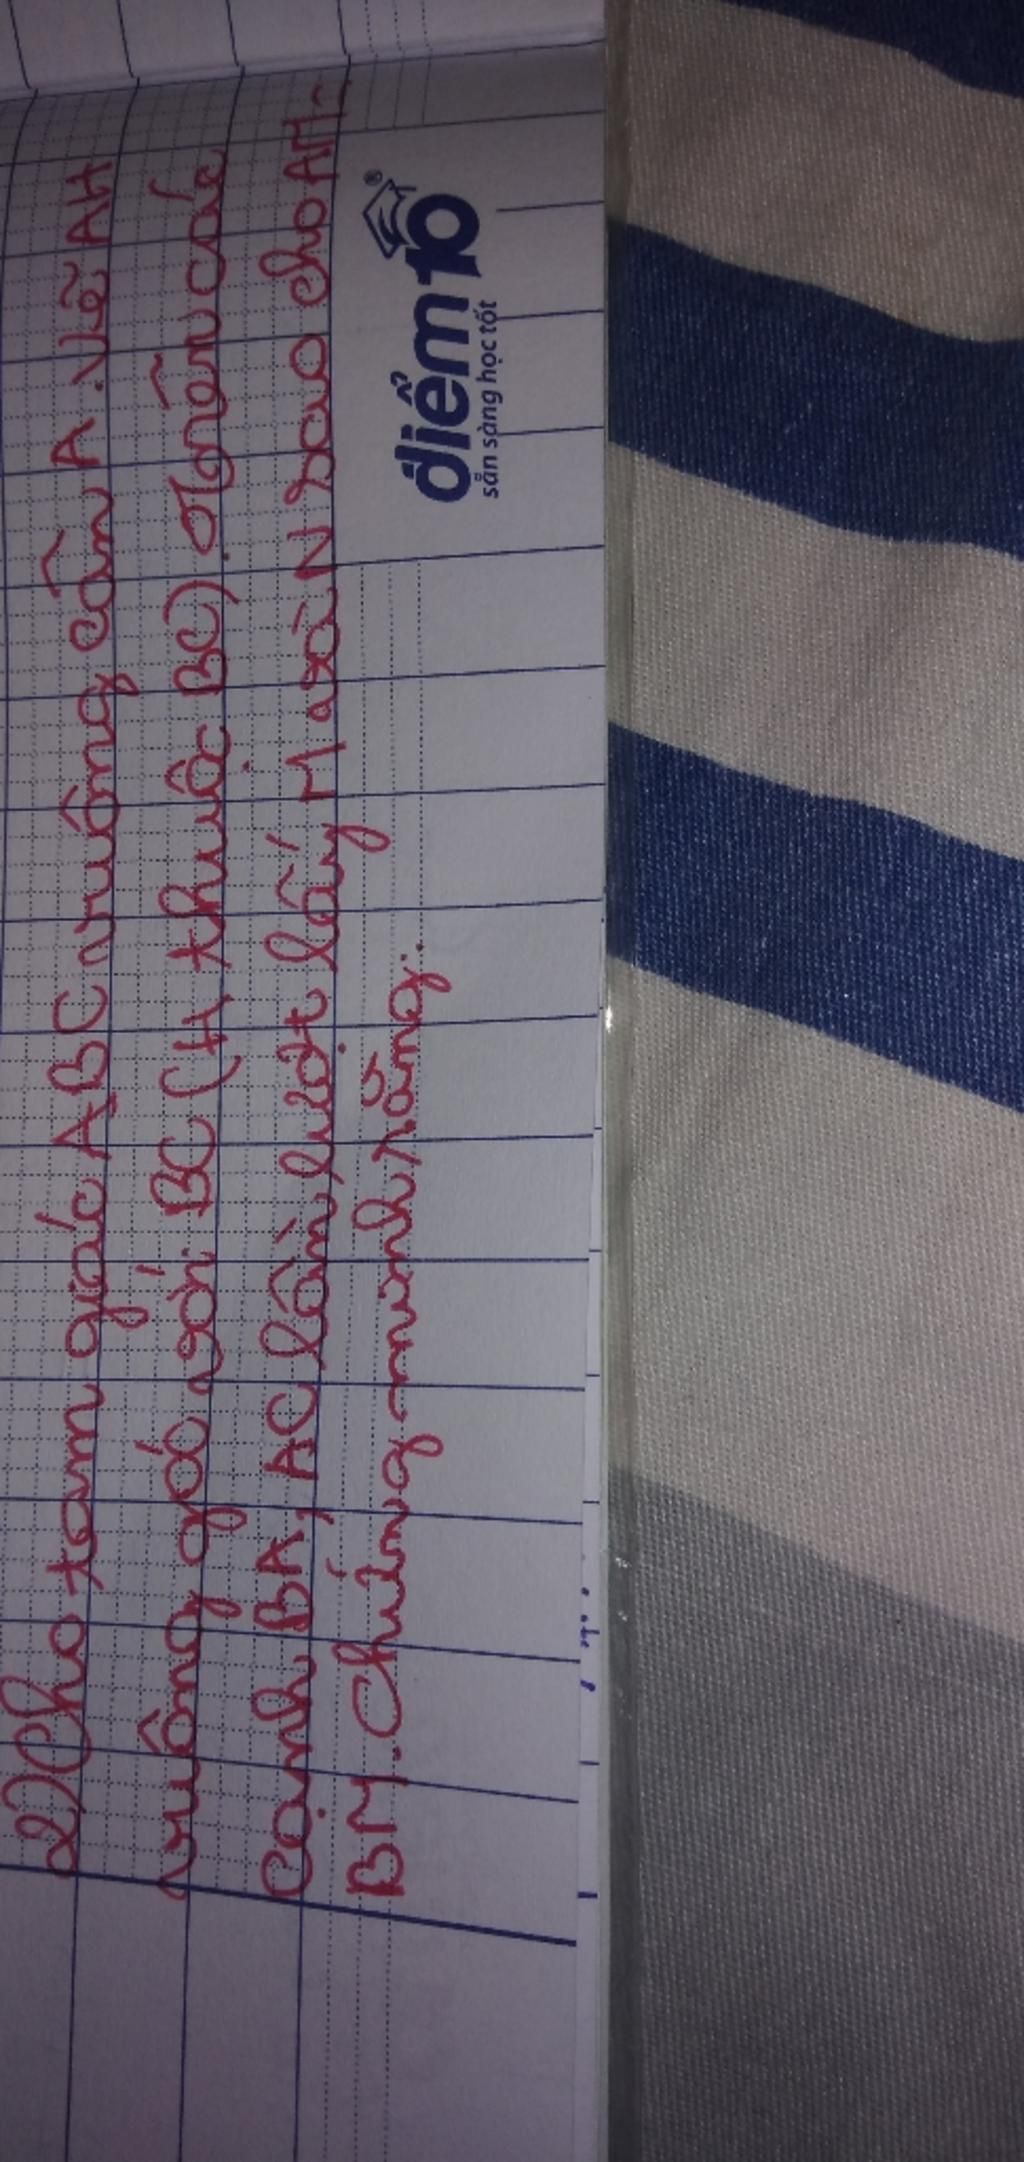 2) Cho tam giác ABC vuông cân A. Vẽ AH
vuông góc với BC (H thuộc BC). Trên các
cạnh BA, AC lần lượt lấy M và N sao cho AM =
BM. Chứng minh rằng:
điểm 10
sẵn sàng học tốt